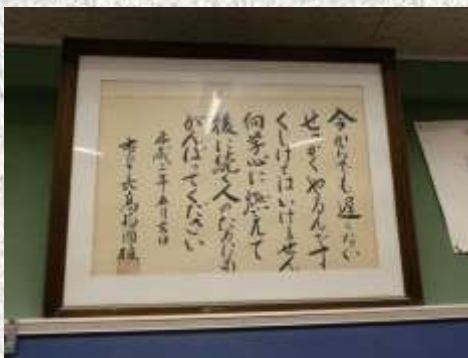 今からでも遅くない
せっかくやるんです
くじけてはいけません
向学心に燃えて
後に続く人のためにも
がんばってください
平成二年五月吉日